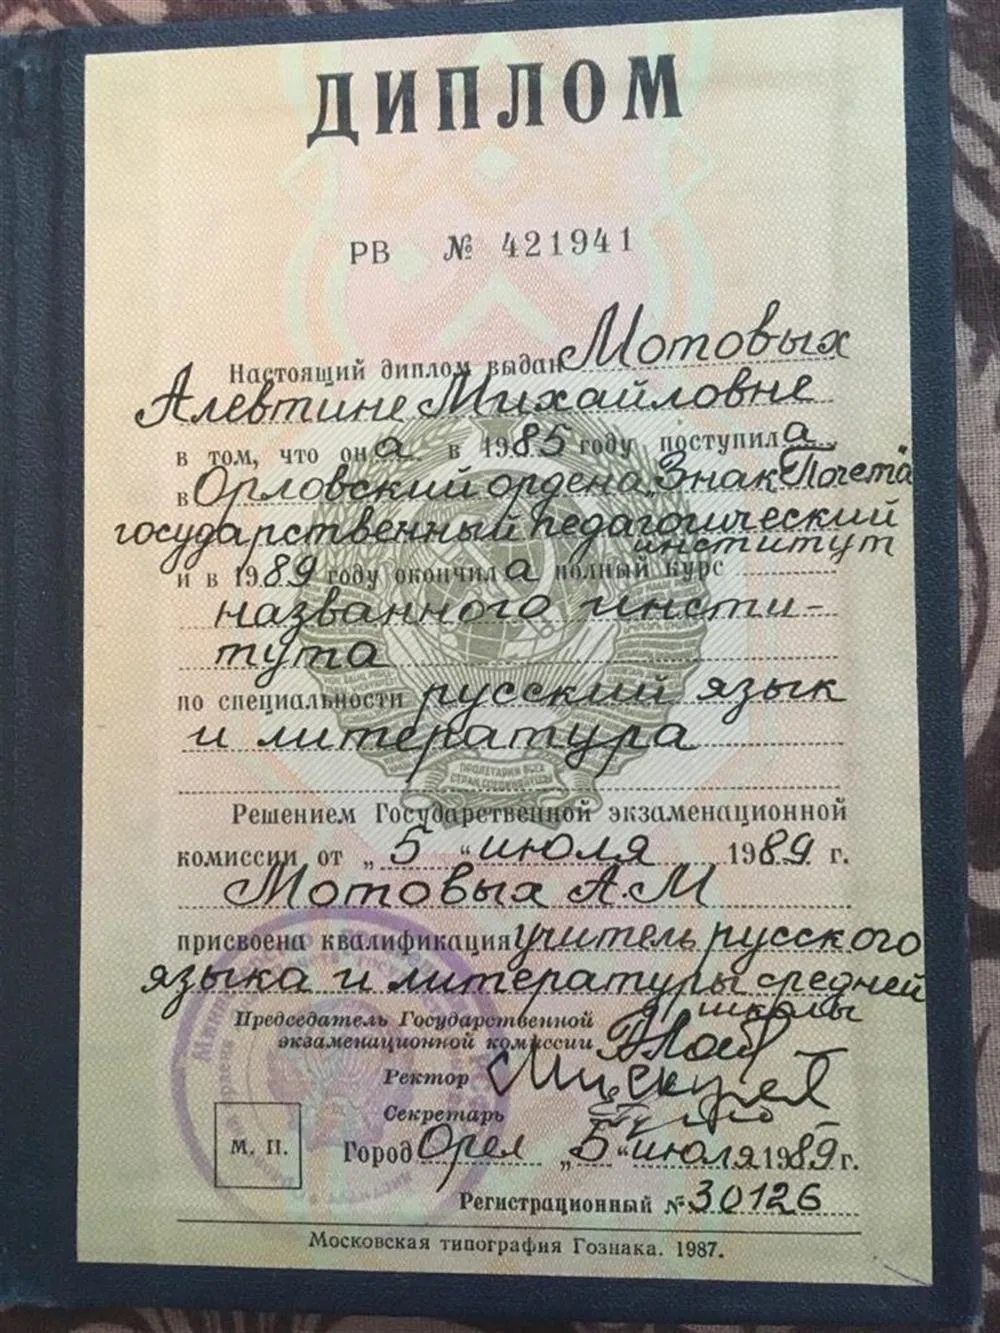 ДИПЛОМ
РВ № 421941
Настоящий диплом выдан Мотовых
Алевтине Михайловне
в том, что она в 1985 году поступила
в Орловский ордена „Знак Почета"
государственный педагогический
институт
и в 1989 году окончила полный курс
названного инсти-
тута
по специальности русский язык
и литература
ПРОЛЕТАРИИ ВСЕХ
СТРАН, СОЕДИНЯЙТЕСЬ!
Решением Государственной экзаменационной
комиссии от „5" июля 1989 г.
Мотовых А.М
присвоена квалификация учитель русского
языка и литературы средней
школы
Председатель Государственной
экзаменационной комиссии
Ректор
Секретарь
М. П.
Город Орел „5" июля 1989 г.
Регистрационный № 30126
Московская типография Гознака. 1987.